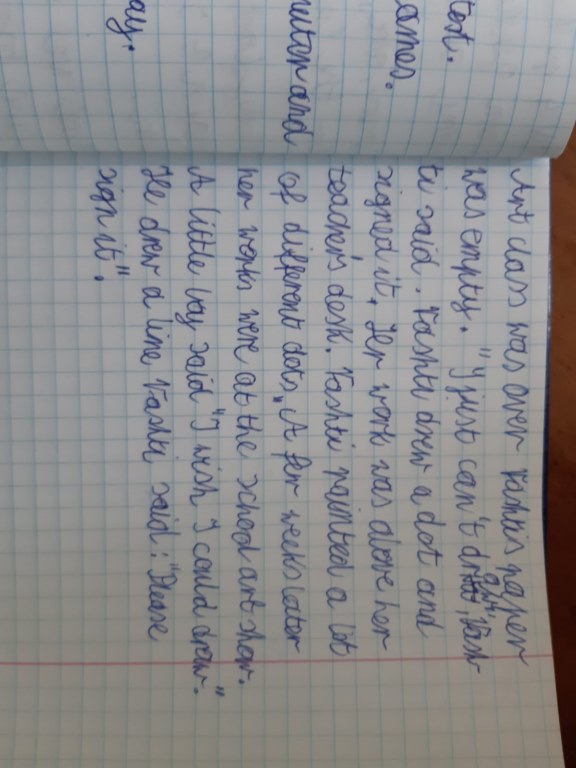 test.
ames.
and
ay.
Art class was over Vashtis paper
was empty. "I just can't draw", Vash-
ti said. Vashti drew a dot and
signed it. Her work was above her
teacher's desk. Vashti painted a lot
of different dots. A few weeks later
her works were at the school art show.
A little boy said "I wish I could draw."
He drew a line Vashti said: "Please
sign it".